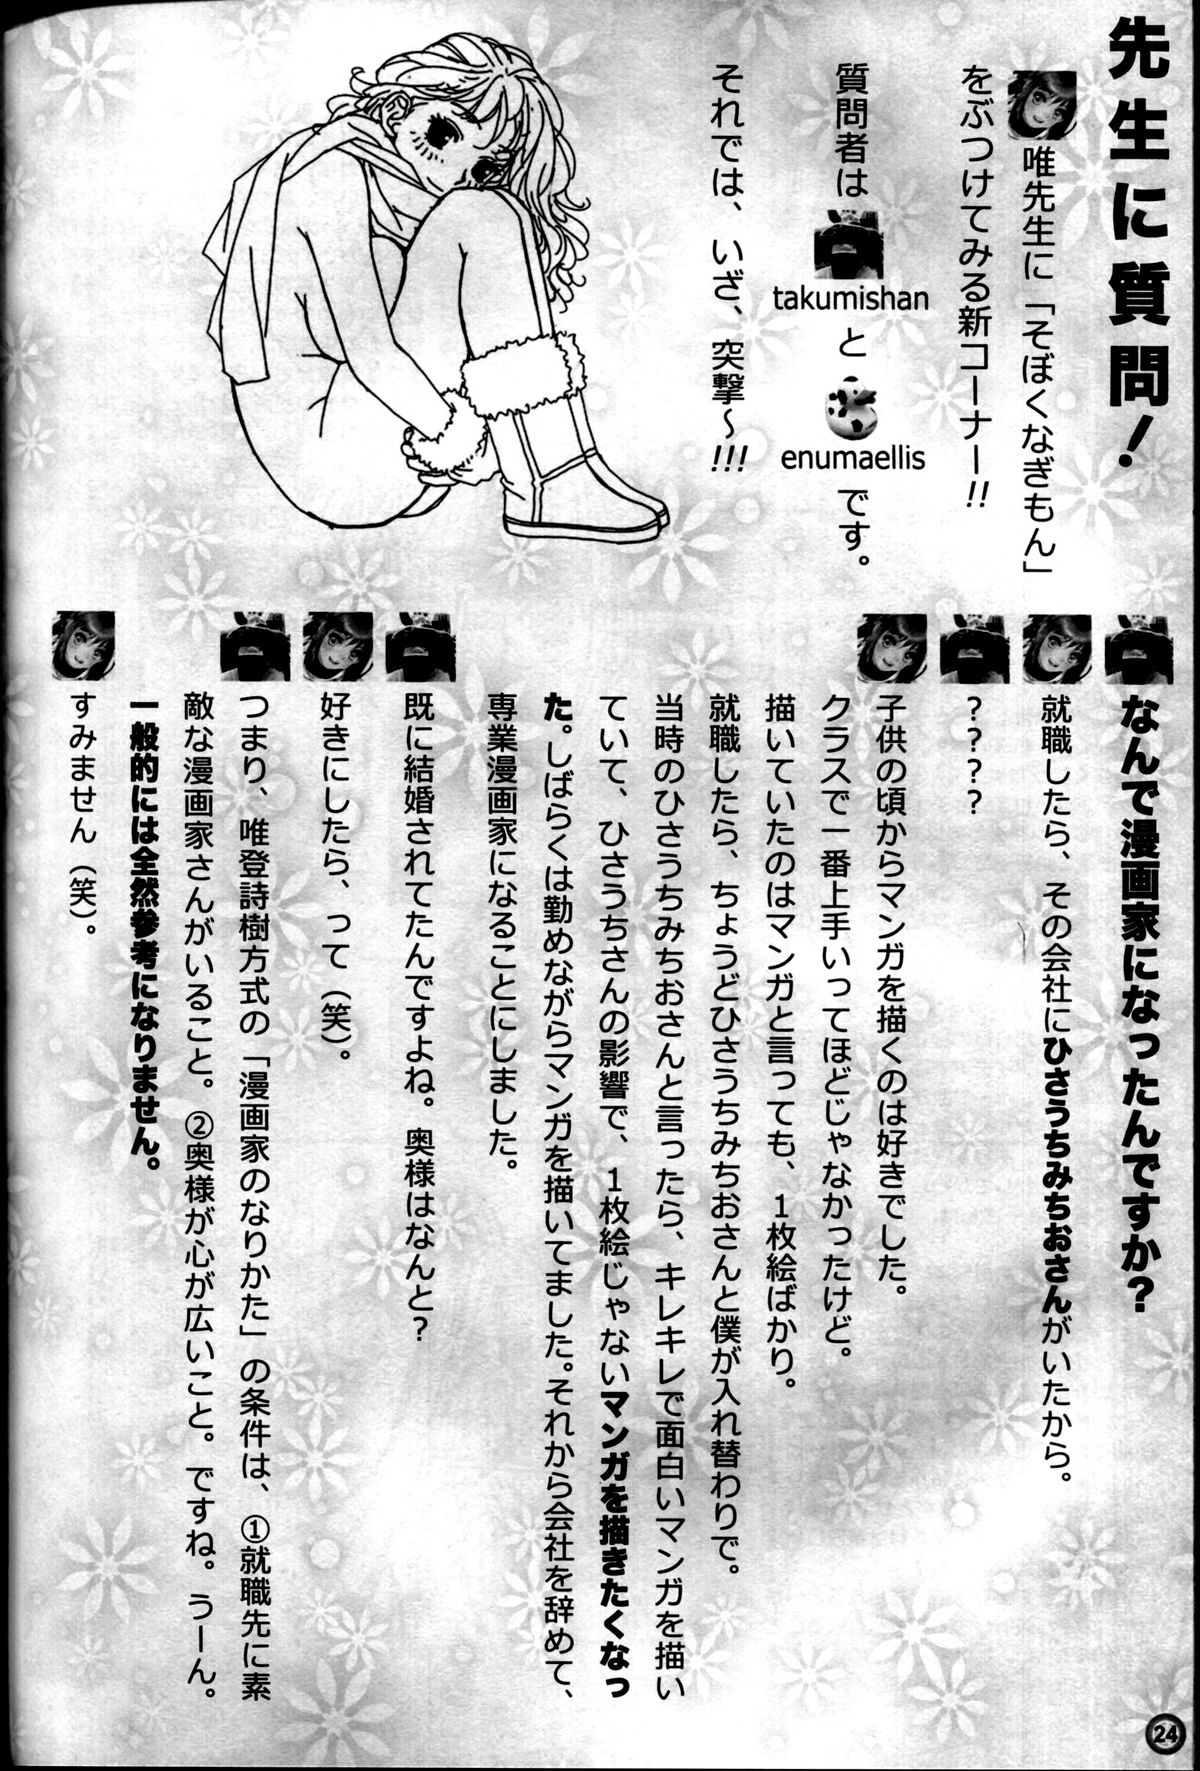 先生に質問！
唯先生に「そぼくなぎもん」
をぶつけてみる新コーナー!!
質問者は takumishan と enumaellis です。
それでは、いざ、突撃～!!!
なんで漫画家になったんですか？
就職したら、その会社にひさうちみちおさんがいたから。
？？？？
子供の頃からマンガを描くのは好きでした。
クラスで一番上手いってほどじゃなかったけど。
描いていたのはマンガと言っても、１枚絵ばかり。
就職したら、ちょうどひさうちみちおさんと僕が入れ替わりで。
当時のひさうちみちおさんと言ったら、キレキレで面白いマンガを描い
ていて、ひさうちさんの影響で、１枚絵じゃないマンガを描きたくなっ
た。しばらくは勤めながらマンガを描いてました。それから会社を辞めて、
専業漫画家になることにしました。
既に結婚されてたんですよね。奥様はなんと？
好きにしたら、って（笑）。
つまり、唯登詩樹方式の「漫画家のなりかた」の条件は、①就職先に素
敵な漫画家さんがいること。②奥様が心が広いこと。ですね。うーん。
一般的には全然参考になりません。
すみません（笑）。
24